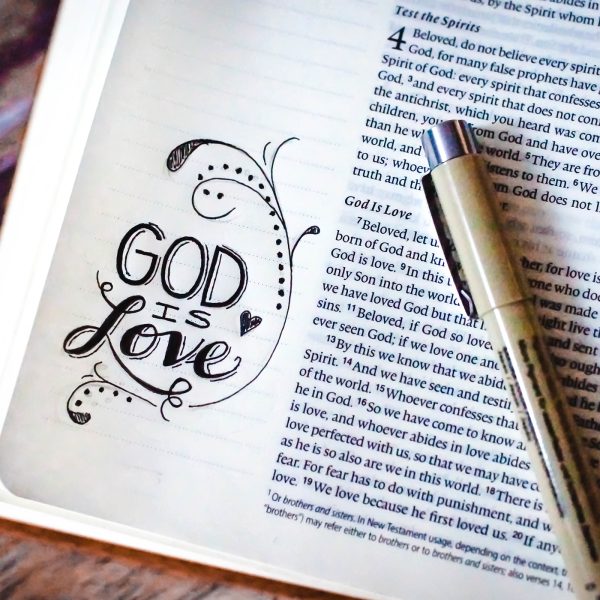 GOD
IS
Love
by the Spirit whom
Test the Spirits
4 Beloved, do not believe every spirit
God, for many false prophets have
Spirit of God: every spirit that confesses
God, 3 and every spirit that does not con
the antichrist, which you heard was com
children, you from God and have ove
than he w world. 5 They are fro
world, and listens to them. 6 We
to us; whoev
truth and th God does not li
God Is Love
7 Beloved, let us her, for love is
born of God and kn one who doe
God is love. 9 In this was made
only Son into the world ight live th
we have loved God but that and sent
sins. 11 Beloved, if God so love
ever seen God; if we love one an abides
13 By this we know that we abid
Spirit. 14 And we have seen and testi
of the world. 15 Whoever confesses tha
he in God. 16 So we have come to know a
is love, and whoever abides in love abides
love perfected with us, so that we may have c
as he is so also are we in this world. 18 There is
fear. For fear has to do with punishment, and w
love. 19 We love because he first loved us. 20 If any
1 Or brothers and sisters. In New Testament usage, depending on the context, t
"brothers") may refer either to brothers or to brothers and sisters; also verses 14, 1